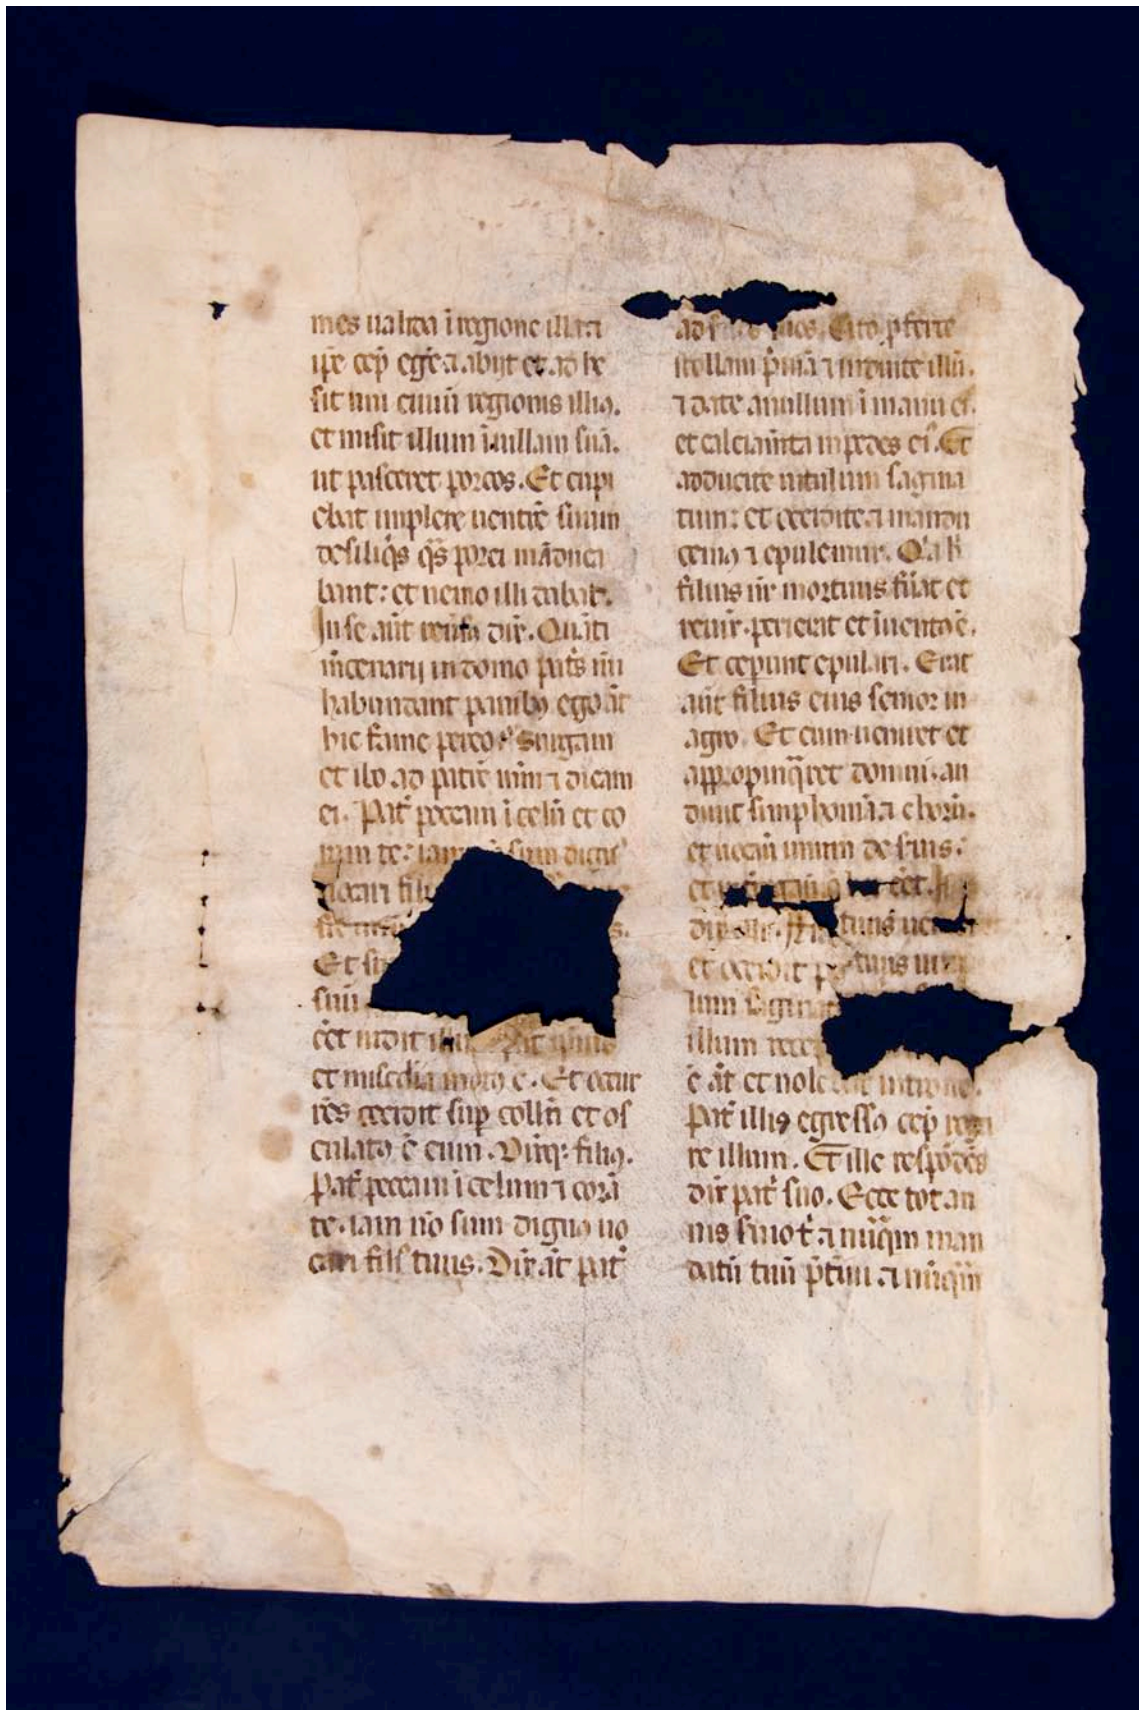 mes ualida ī regione illa ⁊
ip̄e cep̄ egē ⁊ abijt et ad he
sit uni ciuiū regionis illiꝰ.
et misit illum ī uillam suā.
ut pasceret porcos. Et cupi
ebat implere uentrē suum
de siliq̄s q̄s porci māduca
bant: et nemo illi dabat.
In se aūt reuſꝰ dix̄. Quāti
m̄cenarij in domo pat̄s m̄i
habundant panibꝰ ego āt
hic fame pereo. Surgam
et ibo ad patrē m̄m ⁊ dicam
ei. Pat̄ peccaui ī celū et co
ram te: iam sum dignꝰ
uocari fili
Et
suū
eēt uidit illū
et mīscdia motꝰ ē. Et occur
rēs cecidit sup̄ collū et os
culatꝰ ē eum. Dixq̄: filiꝰ.
Pat̄ peccaui ī celum ⁊ corā
te. iam nō sum dignꝰ uo
cari filꝰ tuus. Dix̄ āt pat̄
ad s suos. Cito p̄ferte
stollam p̄mā ⁊ induite illū.
⁊ date anullum ī manu eꝰ.
et calciam̄ta in pedes eiꝰ. Et
adducite uitulum sagina
tum: et occidite ⁊ mandu
cemꝰ ⁊ epulemur. Q̄a h̄
filius m̄s mortuus fūat et
reuix̄. perierat et īuentꝰ ē.
Et cep̄unt epulari. Erat
aūt filius eius senior in
agro. Et cum ueniret et
appropinq̄ret domui. au
diuit simphoniā ⁊ chorū.
et uocauit unum de suis.
et eēt.
dix̄ illi. Fr̄ tuus
et occidit p tuus
lum saginat
illum
ē āt et nole introire.
Pat̄ illiꝰ egressꝰ cep̄ roga
re illum. Et ille respōdēs
dix̄ pat̄ suo. Ecce tot an
nis seruio t̄ ⁊ nūq̄m man
datū tuū p̄t̄iui ⁊ nūq̄m